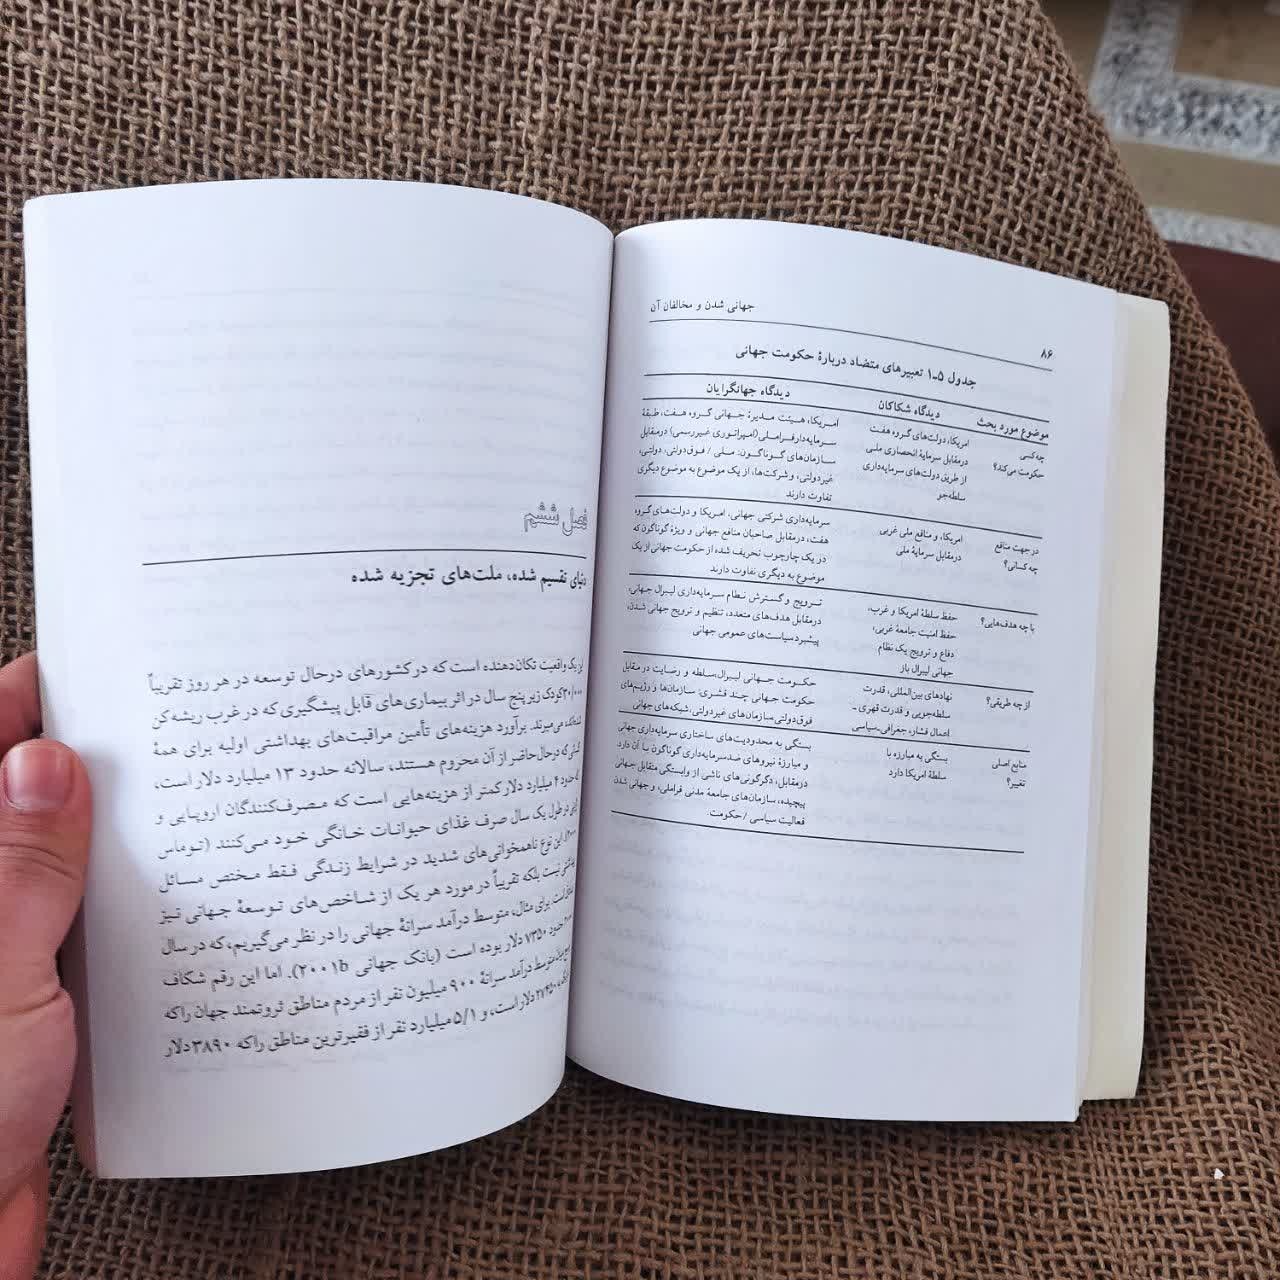 ۸۶
جهانی شدن و مخالفان آن
جدول ۵ـ۱ تعبیرهای متضاد دربارهٔ حکومت جهانی
موضوع مورد بحث
دیدگاه شکاکان
دیدگاه جهانگرایان
چه‌کسی
حکومت می‌کند؟
امریکا، دولت‌های گروه هفت
درمقابل سرمایهٔ انحصاری ملی
از طریق دولت‌های سرمایه‌داری
سلطه‌جو
امریکا، هیئت مدیرهٔ جهانی گروه هفت، طبقهٔ
سرمایه‌دار فراملی (امپراتوری غیررسمی) درمقابل
سازمان‌های گوناگون: ملی / فوق‌دولتی، دولتی،
غیردولتی، و شرکت‌ها، از یک موضوع به موضوع دیگری
تفاوت دارند
در جهت منافع
چه کسانی؟
امریکا، و منافع ملی غربی
درمقابل سرمایهٔ ملی
سرمایه‌داری شرکتی جهانی، امریکا و دولت‌های گروه
هفت، درمقابل صاحبان منافع جهانی و ویژهٔ گوناگون که
در یک چارچوب تحریف شده از حکومت جهانی از یک
موضوع به دیگری تفاوت دارند
با چه هدف‌هایی؟
حفظ سلطهٔ امریکا و غرب،
حفظ امنیت جامعهٔ غربی،
دفاع و ترویج یک نظام
جهانی لیبرال باز
ترویج و گسترش نظام سرمایه‌داری لیبرال جهانی،
درمقابل هدف‌های متعدد، تنظیم و ترویج جهانی شدن،
پیشبرد سیاست‌های عمومی جهانی
از چه طریقی؟
نهادهای بین‌المللی، قدرت
سلطه‌جویی و قدرت قهری ـ
اعمال فشار، جغرافی‌سیاسی
حکومت جهانی لیبرال، سلطه و رضایت درمقابل
حکومت جهانی چند قشری: سازمان‌ها و رژیم‌های
فوق‌دولتی، سازمان‌های غیردولتی، شبکه‌های جهانی
منابع اصلی
تغییر؟
بستگی به مبارزه با
سلطهٔ امریکا دارد
بستگی به محدودیت‌های ساختاری سرمایه‌داری جهانی
و مبارزهٔ نیروهای ضدسرمایه‌داری گوناگون با آن دارد.
درمقابل، دگرگونی‌های ناشی از وابستگی متقابل جهانی
پیچیده، سازمان‌های جامعهٔ مدنی فراملی، و جهانی شدن
فعالیت سیاسی / حکومت.
فصل ششم
دنیای تقسیم شده، ملت‌های تجزیه شده
این یک واقعیت تکان‌دهنده است که در کشورهای درحال توسعه در هر روز تقریباً
۳۰/۰۰۰ کودک زیر پنج سال در اثر بیماری‌های قابل پیشگیری که در غرب ریشه‌کن
شده‌اند، می‌میرند. برآورد هزینه‌های تأمین مراقبت‌های بهداشتی اولیه برای همهٔ
کسانی که درحال‌حاضر از آن محروم هستند، سالانه حدود ۱۳ میلیارد دلار است،
که حدود ۴ میلیارد دلار کمتر از هزینه‌هایی است که مصرف‌کنندگان اروپایی و
ژاپنی در طول یک سال صرف غذای حیوانات خانگی خود می‌کنند (توماس
این نوع ناهمخوانی‌های شدید در شرایط زندگی فقط مختص مسائل
بهداشتی نیست بلکه تقریباً در مورد هر یک از شاخص‌های توسعهٔ جهانی نیز
برای مثال، متوسط درآمد سرانهٔ جهانی را در نظر می‌گیریم، که در سال
حدود ۷۳۵۰ دلار بوده است (بانک جهانی ۲۰۰۱b). اما این رقم شکاف
متوسط درآمد سرانهٔ ۹۰۰ میلیون نفر از مردم مناطق ثروتمند جهان را که
۲۷۴۵۰ دلار است، و ۵/۱ میلیارد نفر از فقیرترین مناطق را که ۳۸۹۰ دلار